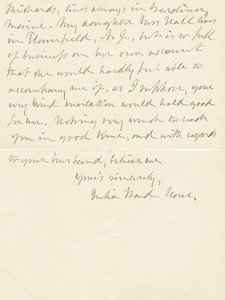 Richards, lives always in Gardiner,
Maine. My daughter Mrs Hall lives
in Plainfield, N. J., but is so full
of business on her own account
that one would hardly feel able to
accompany me if, as I suppose, your
very kind invitation would hold good
for me. Hoping very much to reach
you in good time, and with regards
to your husband, believe me
Yours sincerely,
Julia Ward Howe.